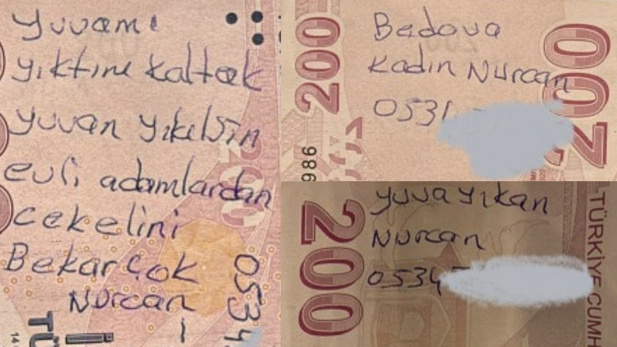 yuvamı
yıktın kaltak
yuvan yıkılsın
evli adamlardan
cekelini
Bekar çok
Nurcan
0534
14
TÜ
200
986
Bedava
Kadın Nurcan
053
200
200
yuva yıkan
Nurcan
0534
TÜRKİYE CUMH